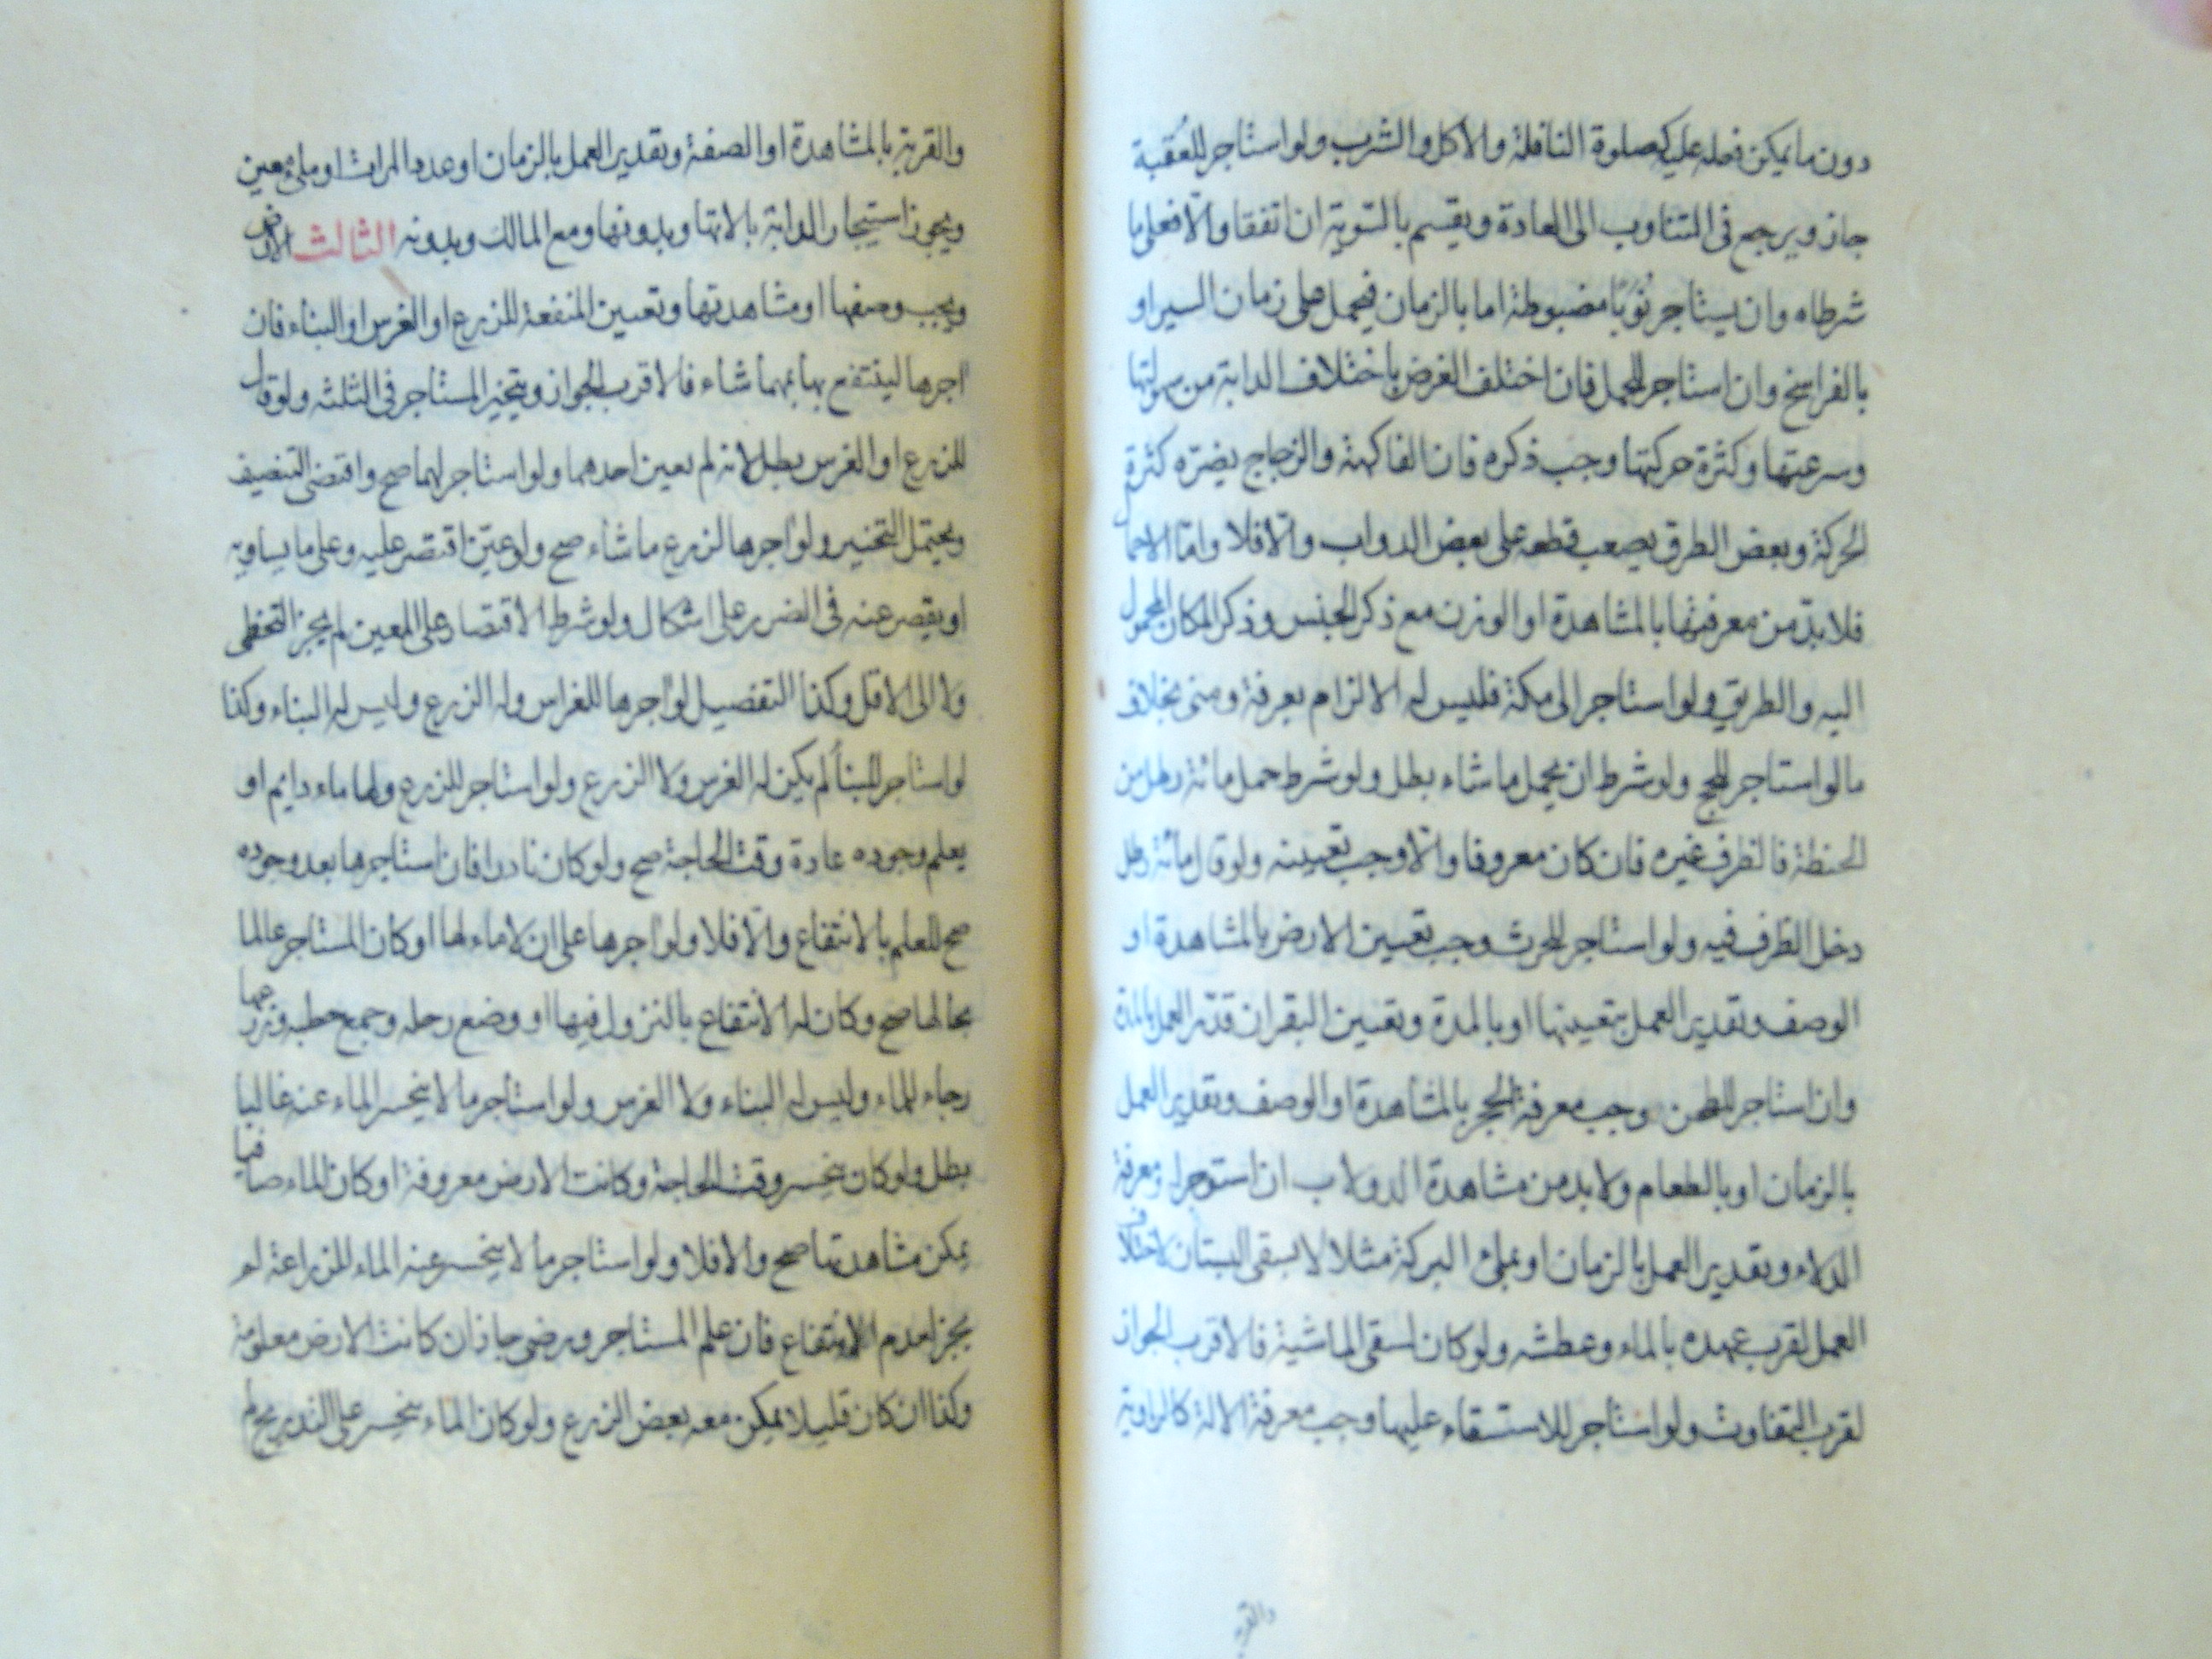 دون ما يمكن فعله عليه كصلوة النافلة والاكل والشرب ولو استاجر للعقبة
جاز ويرجع فى التناوب الى العادة ويقسم بالسوية ان اتفقا والا فعلى ما
شرطاه وان يستاجر نوبا مضبوطة اما بالزمان فيحمل على زمان السير او
بالفراسخ وان استاجر للحمل فان اختلف الغرض باختلاف الدابة من سهولتها
وسرعتها وكثرة حركتها وجب ذكره فان الفاكهة والزجاج يضره كثرة
الحركة وبعض الطرق يصعب قطعه على بعض الدواب والا فلا واما الاحمال
فلابد من معرفتها بالمشاهدة او الوزن مع ذكر الجنس وذكر المكان المحمول
اليه والطريق ولو استاجر الى مكة فليس له الالزام بعرفة ومنى بخلاف
ما لو استاجر للحج ولو شرط ان يحمل ما شاء بطل ولو شرط حمل مائة رطل من
الحنطة فالظرف غيره فان كان معروفا والا وجب تعيينه ولو قال مائة رطل
دخل الظرف فيه ولو استاجر للحرث وجب تعيين الارض بالمشاهدة او
الوصف وتقدير العمل بتعيينها او بالمدة وتعيين البقر ان قدر العمل بالمدة
وان استاجر للطحن وجب معرفة الحجر بالمشاهدة او الوصف وتقدير العمل
بالزمان او بالطعام ولابد من مشاهدة الدولاب ان استوجر له ومعرفة
الدلاء وتقدير العمل بالزمان او بملئ البركة مثلا لا بسقى البستان لاختلاف
العمل لقرب عهده بالماء وعطشه ولو كان لسقى الماشية فالاقرب الجواز
لقرب التفاوت ولو استاجر للاستقاء عليها وجب معرفة الالة كالراوية
والقربة
والقربة بالمشاهدة او الصفة وتقدير العمل بالزمان او عدد المرات او ملئ معين
ويجوز استيجار الدابة بالاتها وبدونها ومع المالك وبدونه الثالث الارض
ويجب وصفها او مشاهدتها وتعيين المنفعة للزرع او الغرس او البناء فان
اجرها لينتفع بها بمهما شاء فالاقرب الجواز ويتخير المستاجر فى الثلثه ولو قال
للزرع او الغرس بطل لانه لم يعين احدهما ولو استاجر لهما صح واقتضى التنصيف
ويحتمل التخيير ولو اجرها لزرع ما شاء صح ولو عين اقتصر عليه وعلى ما يساويه
او يقصر عنه فى الضرر على اشكال ولو شرط الاقتصار على المعين لم يجز التخطى
ولا الى الاقل وكذا التفصيل لو اجرها للغراس وله الزرع وليس له البناء وكذا
لو استاجر للبنا لم يكن له الغرس ولا الزرع ولو استاجر للزرع ولها ماء دايم او
يعلم وجوده عادة وقت الحاجة صح ولو كان نادرا فان استاجرها بعد وجوده
صح للعلم بالانتفاع والا فلا ولو اجرها على ان لا ماء لها او كان المستاجر عالما
بحالها صح وكان له الانتفاع بالنزول فيها او وضع رحله وجمع حطبه وزرعها
رجاء للماء وليس له البناء ولا الغرس ولو استاجر ما لا ينحسر الماء عنه غالبا
بطل ولو كان ينحسر وقت الحاجة وكانت الارض معروفة او كان الماء صافيا
يمكن مشاهدتها صح والا فلا ولو استاجر ما لا ينحسر عنه الماء للزراعة لم
يجز لعدم الانتفاع فان علم المستاجر ورضى جاز ان كانت الارض معلومة
وكذا ان كان قليلا يمكن معه بعض الزرع ولو كان الماء ينحسر على التدريج لم